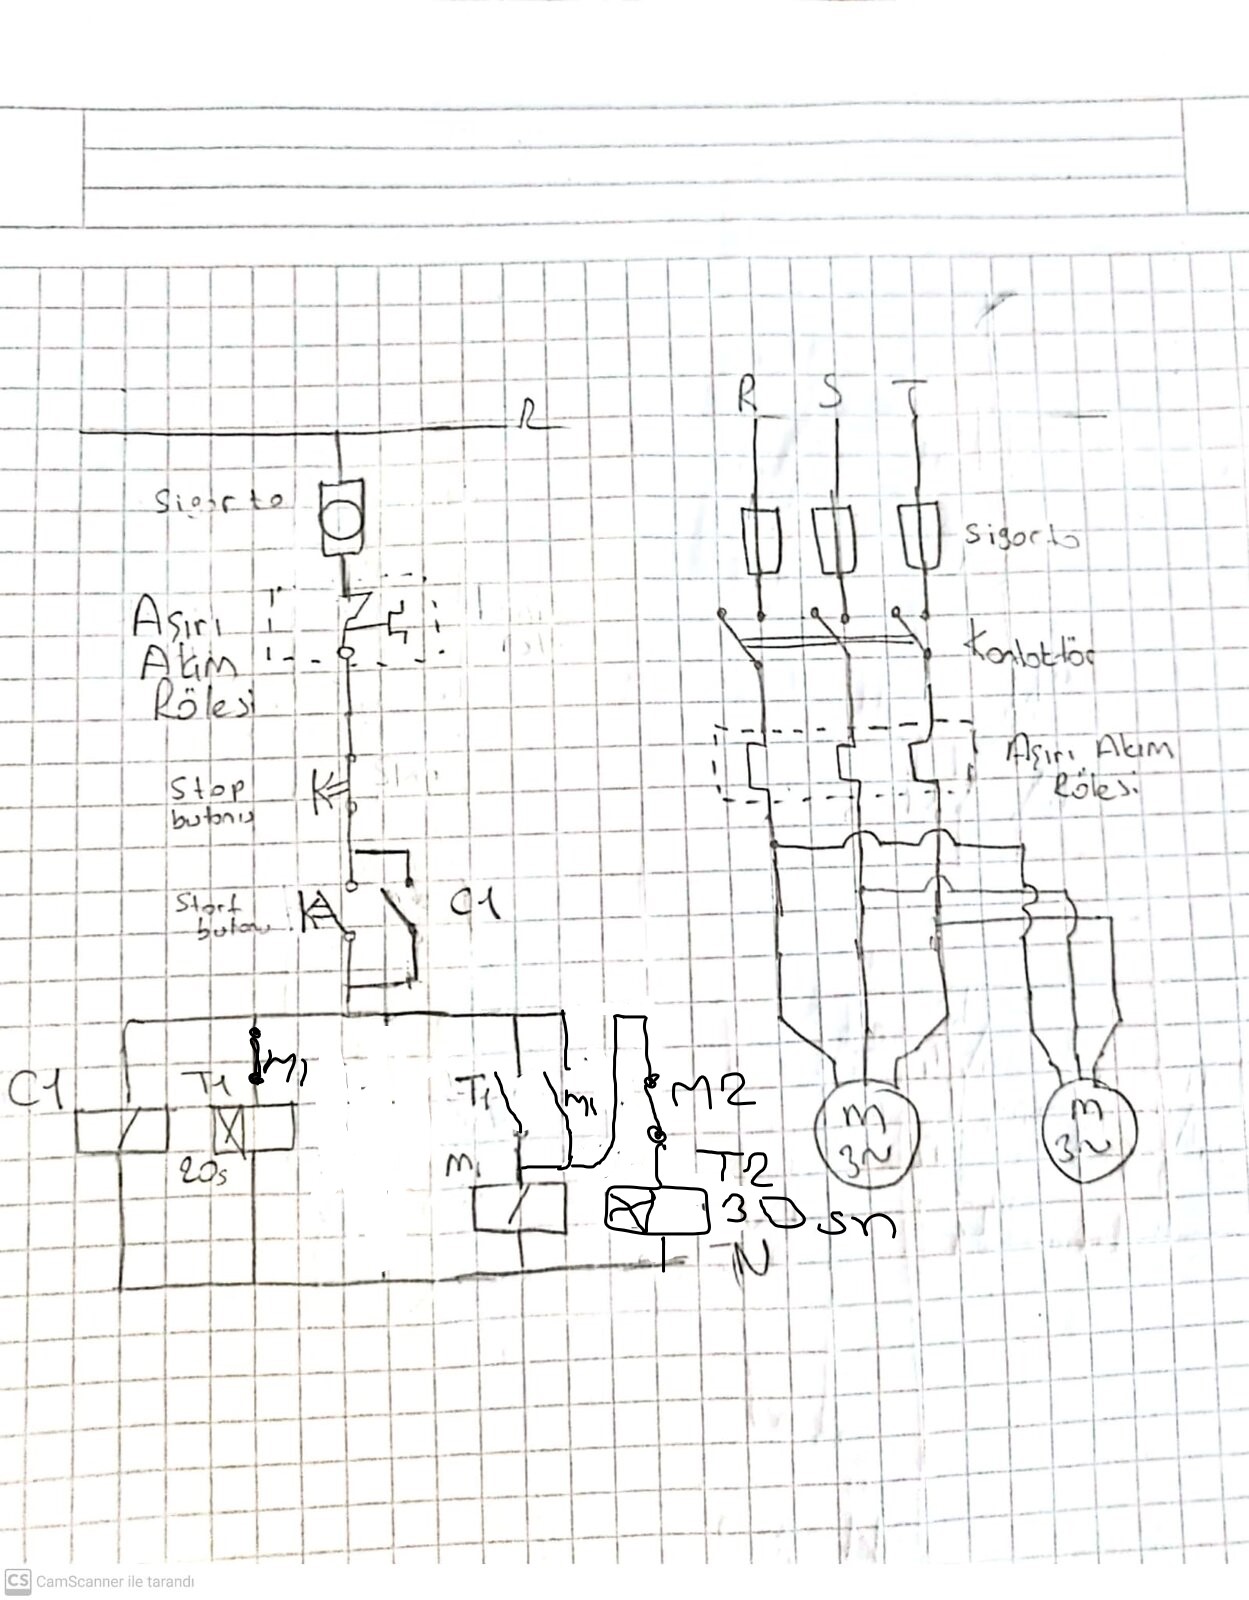 R
R S T
Sigorta
Sigorta
Aşırı
Akım
Rölesi
Kontaktör
Aşırı Akım
Rölesi
Stop
butonu
Start
butonu
C1
C1
T1
M1
20s
T1
M1
M1
M2
T2
30sn
N
M
3~
M
3~
CS CamScanner ile tarandı